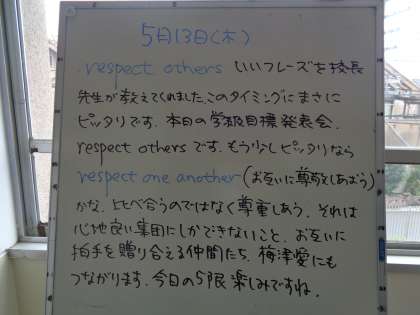 5月13日(木)
respect others いいフレーズを校長
先生が教えてくれました。このタイミングにまさに
ピッタリです。本日の学級目標発表会。
respect othersです。もう少しピッタリなら
respect one another(お互いに尊敬しあおう)
かな。比べ合うのではなく尊重しあう。それは
心地良い集団にしかできないこと。お互いに
拍手を贈り合える仲間たち。梅津愛にも
つながります。今日の5限楽しみですね。